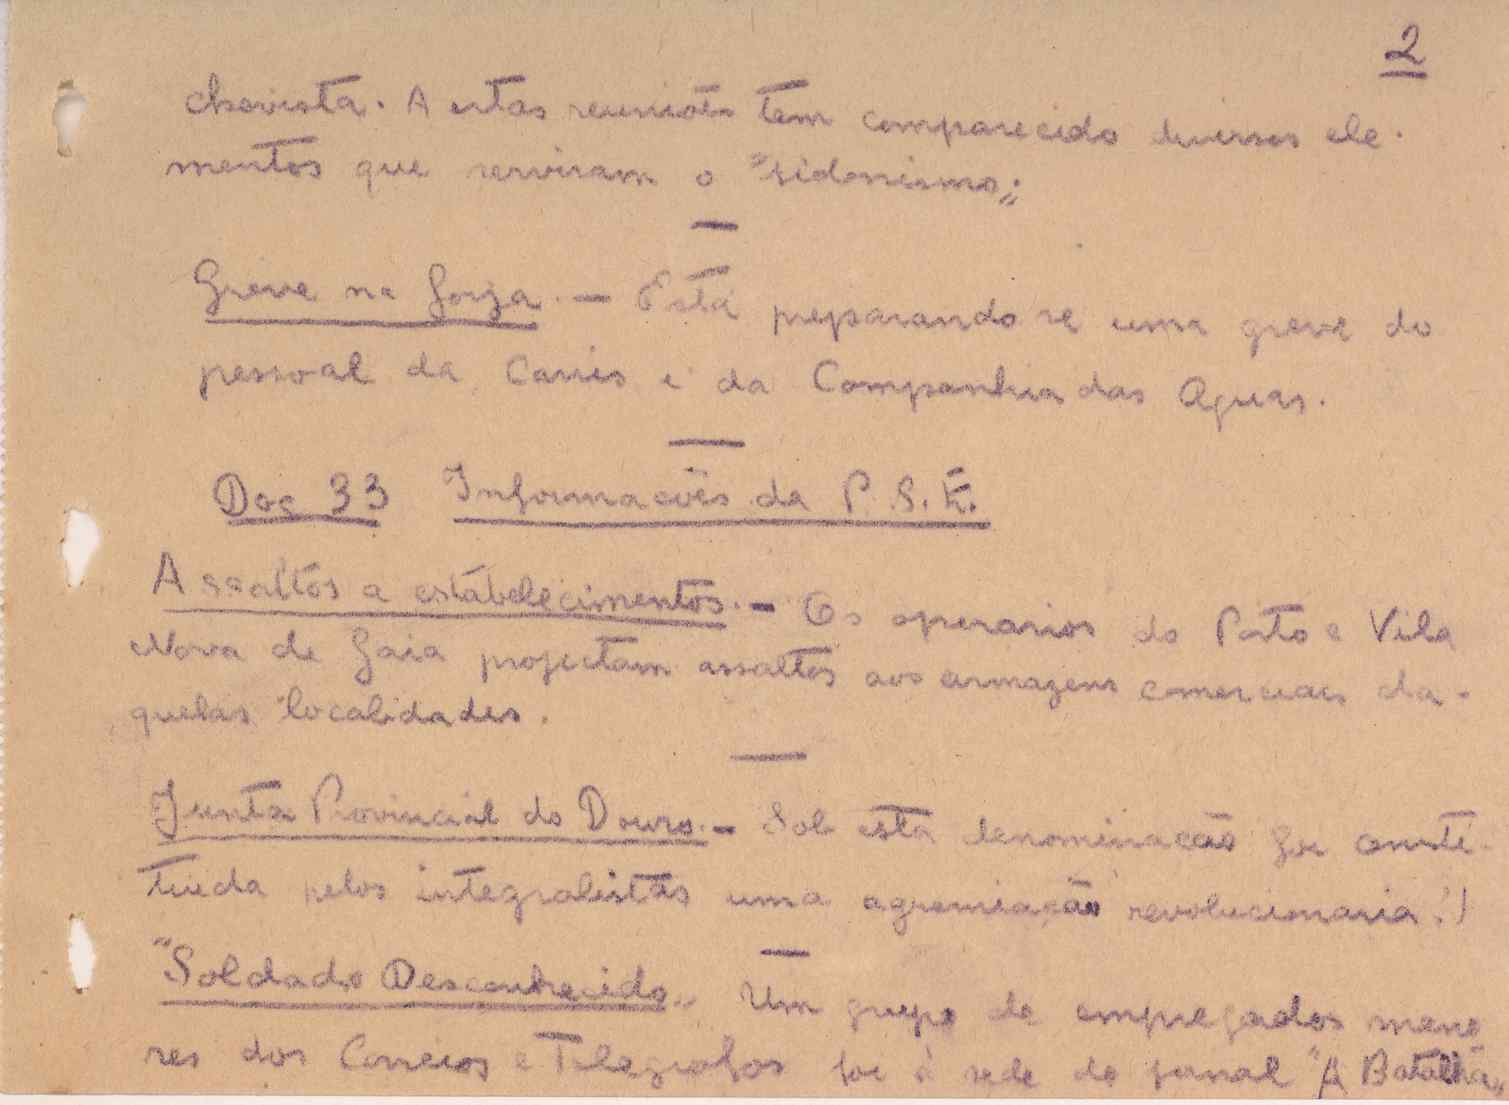 2
chevista. A estas reuniões tem comparecido diversos ele-
mentos que serviram o "sidonismo".
Greve na forja. — Está preparando se uma greve do
pessoal da Carris e da Companhia das Aguas.
Doc 33 Informações da P. S. E.
Assaltos a estabelecimentos. — Os operarios do Porto e Vila
Nova de Gaia projectam assaltos aos armazens comerciais da-
quelas localidades.
Junta Provincial do Douro. — Sob esta denominação foi consti-
tuida pelos integralistas uma agremiação revolucionaria!)
"Soldado Desconhecido" Um grupo de empregados meno
res dos Correios e Telegrafos foi à sede do jornal "A Batalha"